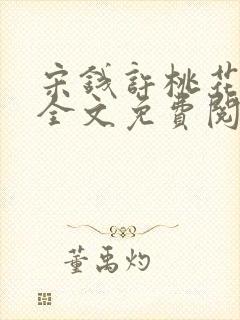 宋钱許桃花
全文免費閱
董禹灼